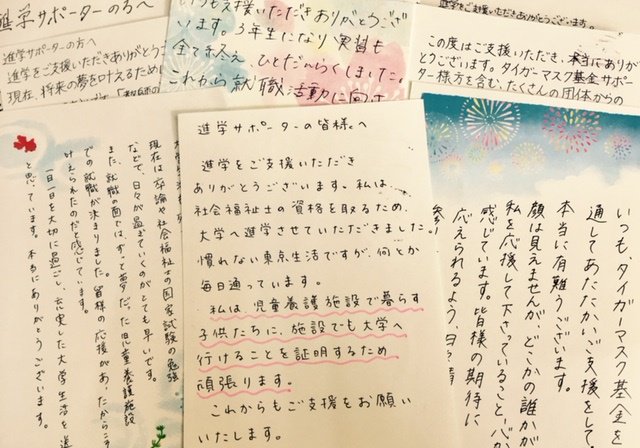 進学サポーターの方へ
進学サポーターの方へ
進学をご支援いただきありがとうご
現在、将来の夢を叶えるため
いつも支援いただきありがとうござい
ます。3年生になり実習も
全て終え、ひとだんらくしました。
これから就職活動に向け
進学をご支援いただきありがとうございます。
この度はご支援いただき、本当にありが
とうございます。タイガーマスク基金サポ
ーター様方を含む、たくさんの団体からの
現在は卒論や社会福祉士の国家試験の勉強
などで、日々が過ぎていくものがとても早いです。
また、就職の面では、ずっと夢だった児童養護施設
での就職が決まりました。皆様の応援があったからこそ
叶えられたのだと感じています。
一日一日を大切に過ごし、充実した大学生活を送
と思っています。本当にありがとうございます。
進学サポーターの皆様へ
進学をご支援いただき
ありがとうございます。私は、
社会福祉士の資格を取るため、
大学へ進学させていただきました。
慣れない東京生活ですが、何とか
毎日通っています。
私は、児童養護施設で暮らす
子供たちに、施設でも大学へ
行けることを証明するため
頑張ります。
これからもご支援をお願い
いたします。
いつも、タイガーマスク基金を
通してあたたかいご支援をして
本当に有難うございます。
顔は見えませんが、どこかの誰かが
私を応援して下さっていること、バ
感じています。皆様の期待に
応えられるよう、